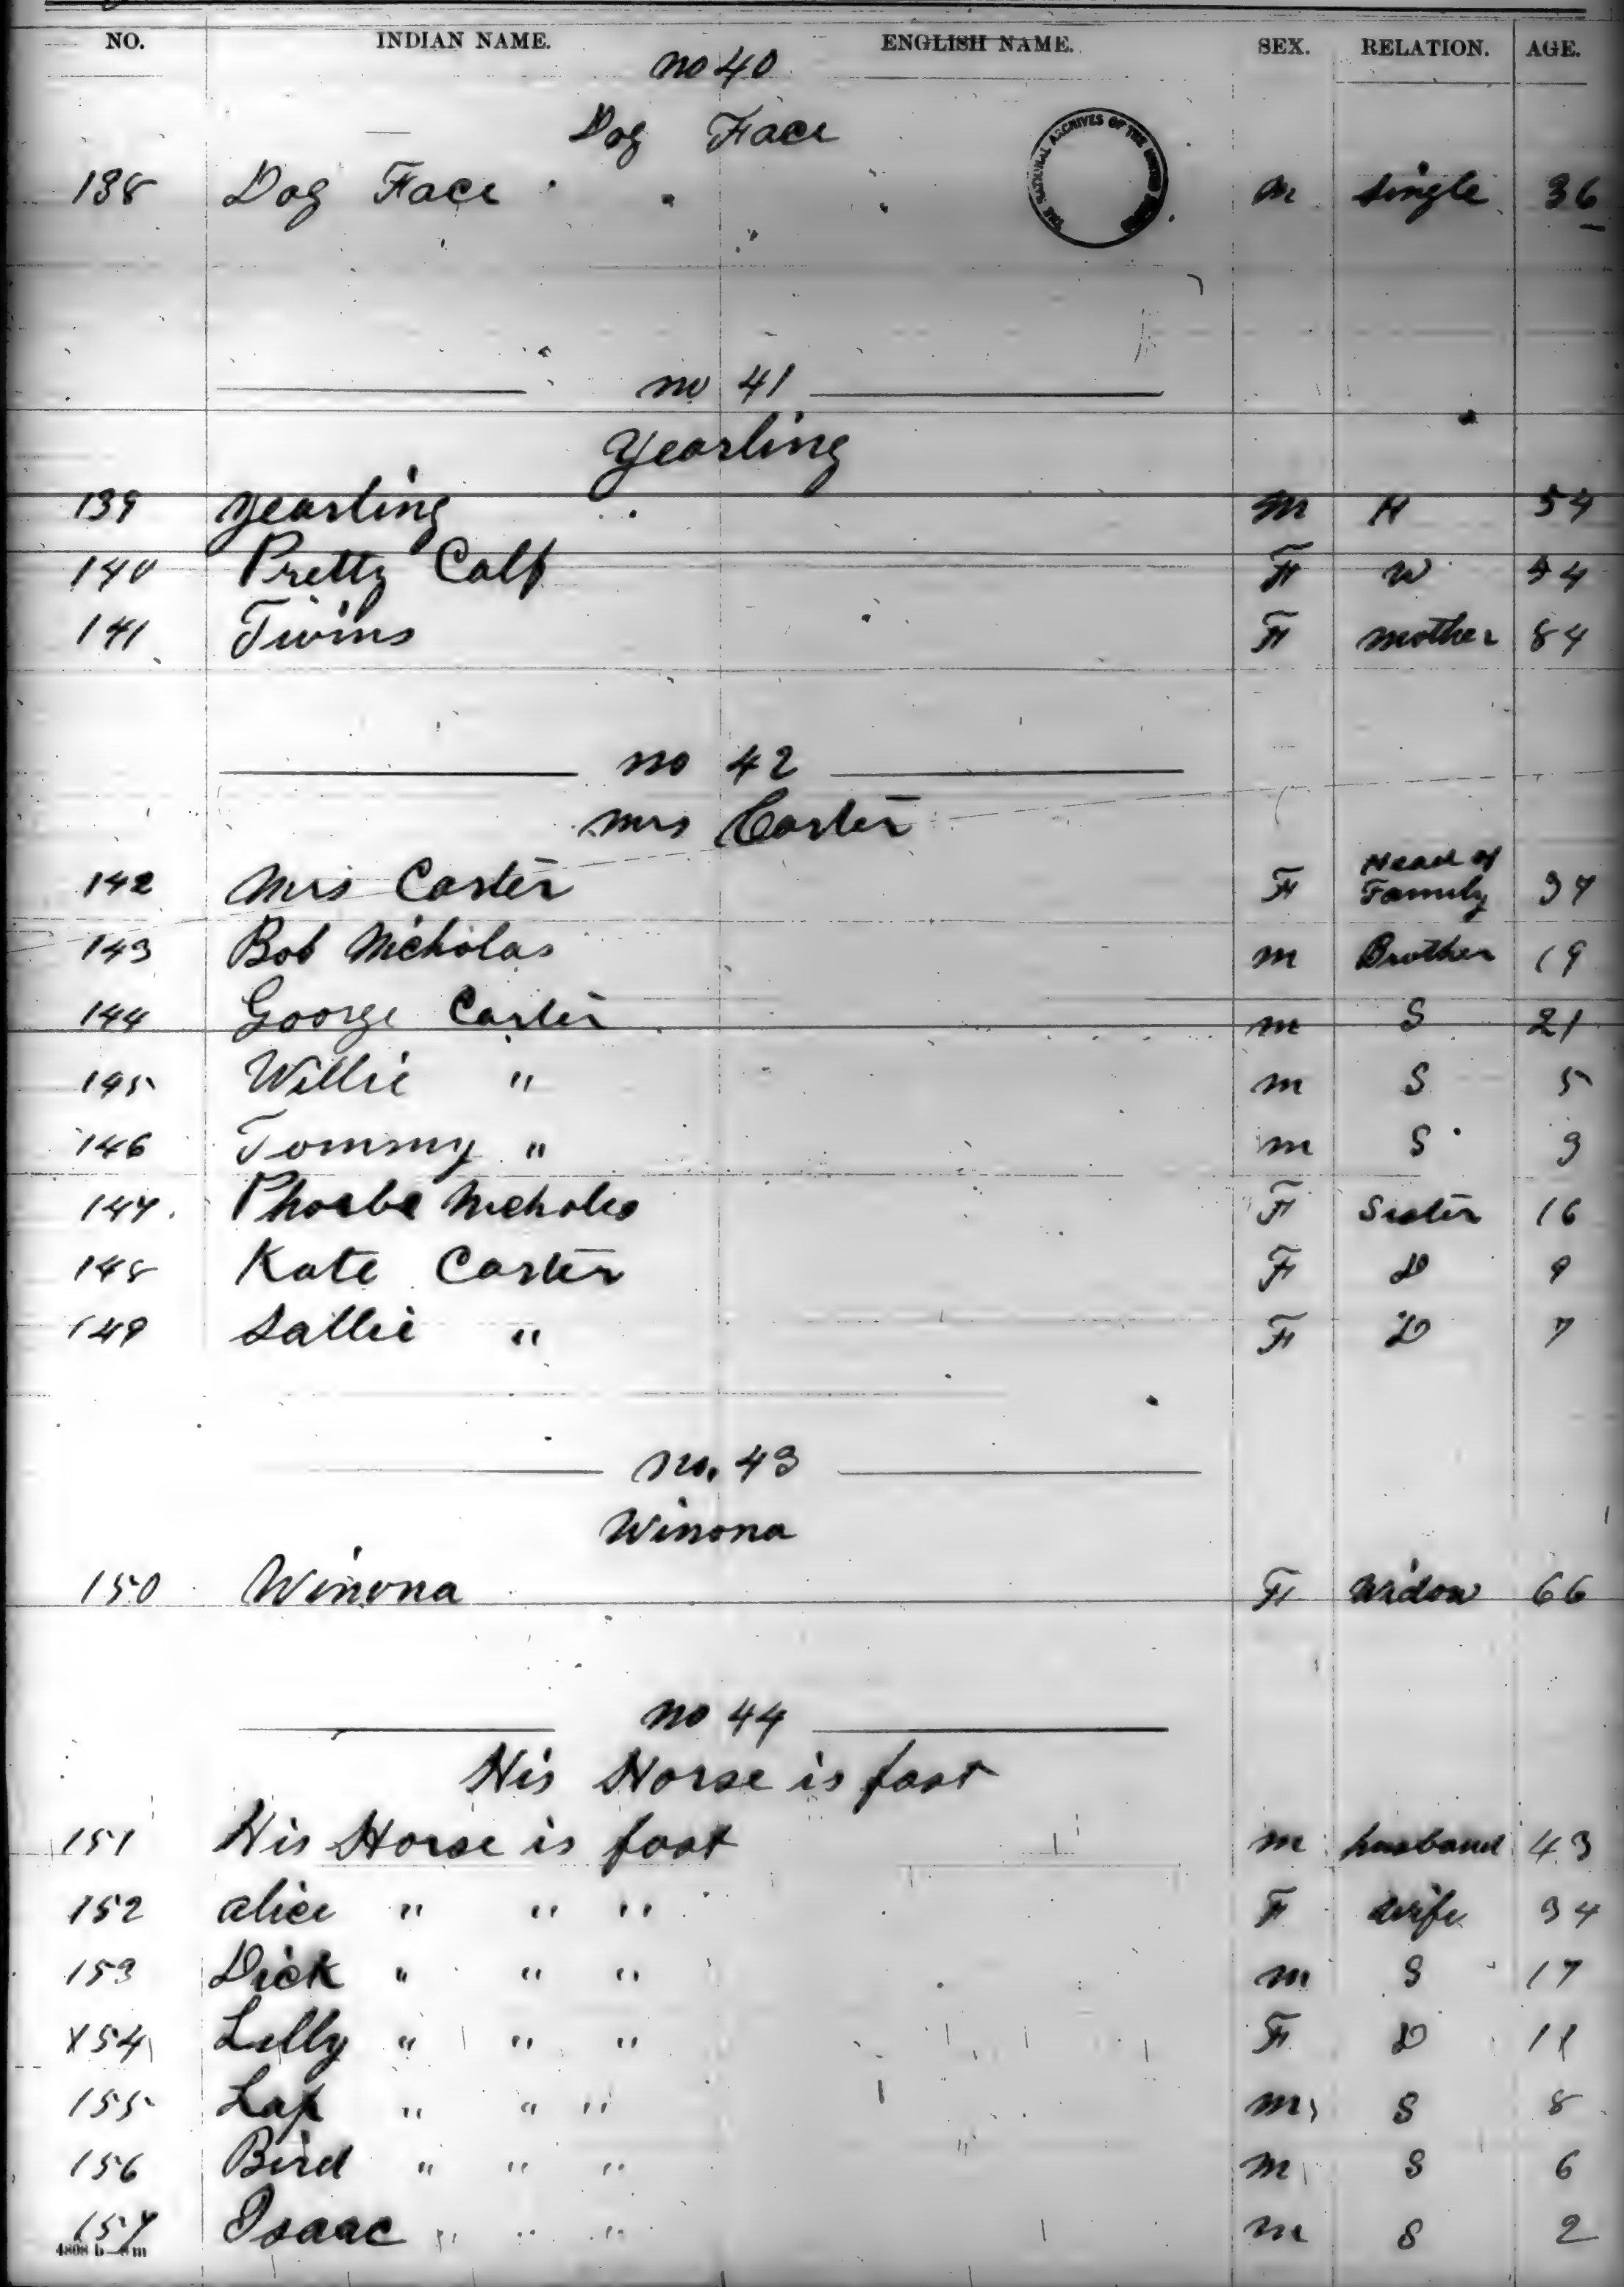 NO. INDIAN NAME. ENGLISH NAME. SEX. RELATION. AGE.
no 40
Dog Face
138 Dog Face m single 36
no 41
Yearling
139 Yearling m H 54
140 Pretty Calf F W 54
141 Twins F mother 84
no 42
mrs Carter
142 Mrs Carter F Head of Family 37
143 Bob Nicholas m Brother 19
144 George Carter m S 21
145 Willie " m S 5
146 Tommy " m S 3
147. Phoebe Nicholas F Sister 16
148 Kate Carter F D 9
149 Sallie " F D 7
no. 43
Winona
150 Winona F Widow 66
no 44
His Horse is fast
151 His Horse is fast m husband 43
152 alice " " " F wife 34
153 Dick " " " m S 17
154 Lilly " " " F D 11
155 " " " m S 8
156 Bird " " " m S 6
157 Isaac " " " m S 2
4808 b—8 m
THE NATIONAL ARCHIVES OF THE UNITED STATES